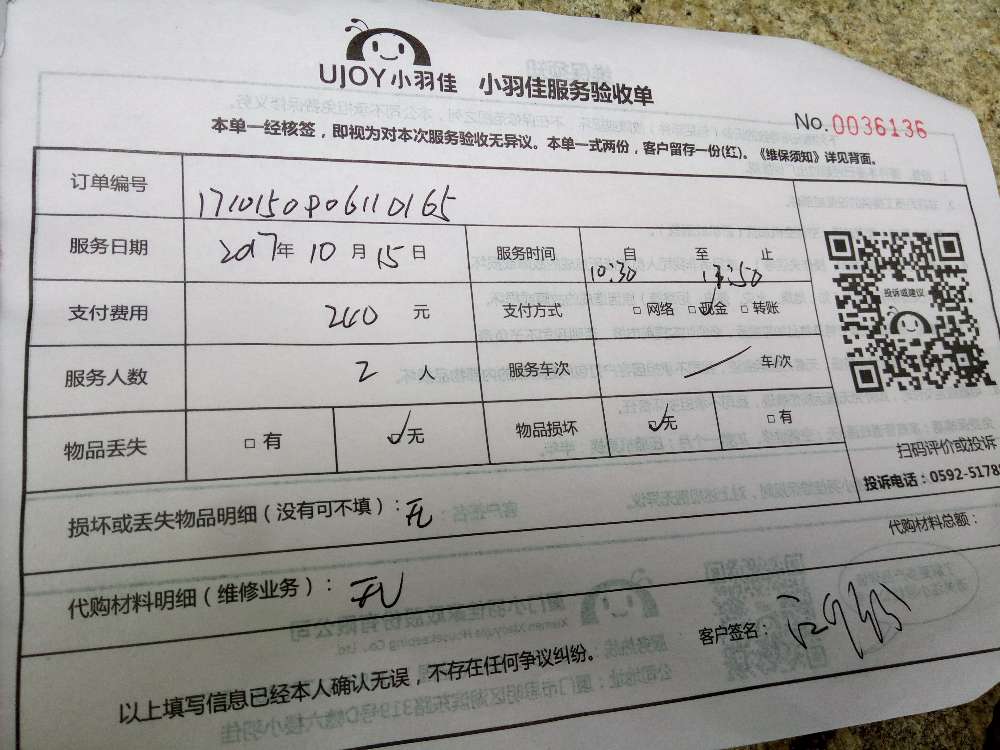 UJOY小羽佳 小羽佳服务验收单
No.0036136
本单一经核签，即视为对本次服务验收无异议。本单一式两份，客户留存一份(红)。《维保须知》详见背面。
订单编号 1710150906110165
服务日期 2017年10月15日 服务时间 自 至 止
10:30 13:50
支付费用 240 元 支付方式 □网络 ☑现金 □转账
服务人数 2 人 服务车次 / 车/次
物品丢失 □有 ☑无 物品损坏 ☑无 □有
投诉或建议
扫码评价或投诉
投诉电话：0592-5178
损坏或丢失物品明细（没有可不填）：无
代购材料总额：
代购材料明细（维修业务）：无
客户签名：
以上填写信息已经本人确认无误，不存在任何争议纠纷。